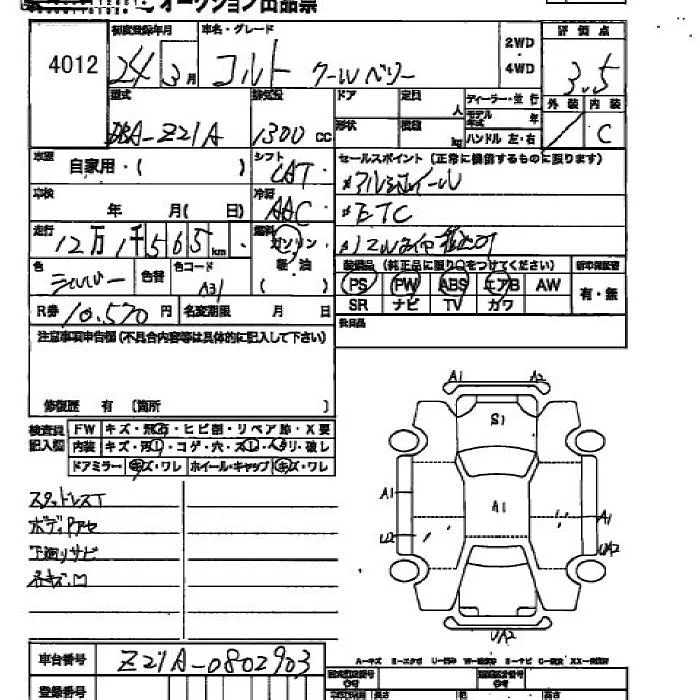 オークション出品票
4012
初度登録年月
24年3月
車名・グレード
コルト クールベリー
2WD
4WD
評価点
3.5
型式
DBA-Z21A
排気量
1300cc
ドア
定員
人
形状
積載
kg
ディーラー・並行
モデル年式 年
ハンドル 左・右
外装 内装
C
車歴
自家用・( )
シフト
CAT
セールスポイント(正常に機能するものに限ります)
*アルミホイール
車検
年 月( 日)
冷房
AAC
*ETC
走行
12万1千565km
燃料
ガソリン
軽・油
( )
色
シルバー
色替
色コード
A31
装備品(純正品に限り○をつけてください)
新車保証書
PS PW ABS エアB AW
有・無
SR ナビ TV カワ
R券 10.570円
名変期限 月 日
後日品
注意事項申告欄(不具合内容等は具体的に記入して下さい)
修復歴 有 〔箇所 〕
検査員記入欄
FW キズ・飛石・ヒビ割・リペア跡・X要
内装 キズ・汚レ・コゲ・穴・スレ・ヘタリ・破レ
ドアミラー キズ・ワレ ホイール・キャップ キズ・ワレ
スタッドレスT
下廻りサビ
A1 A2
S1
A1
A1
A1
U2
UA2
UA2
車台番号 Z21A-0802903
登録番号
長さ 幅 高さ